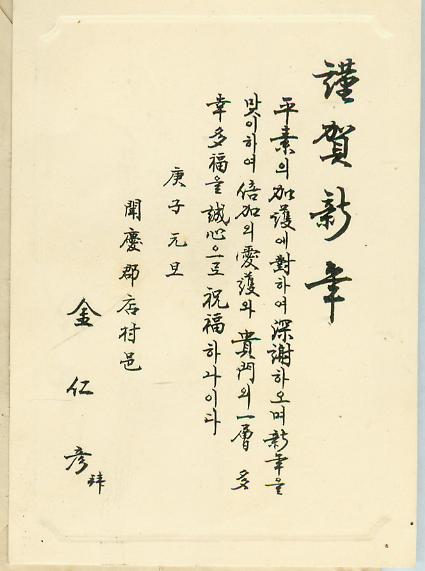 謹賀新年
平素의 加護에 對하여 深謝하오며 新年을
맞이하여 倍加의 愛護와 貴門의 一層 多
幸多福을 誠心으로 祝福하나이다
庚子元旦
聞慶郡店村邑
金仁彦 拜